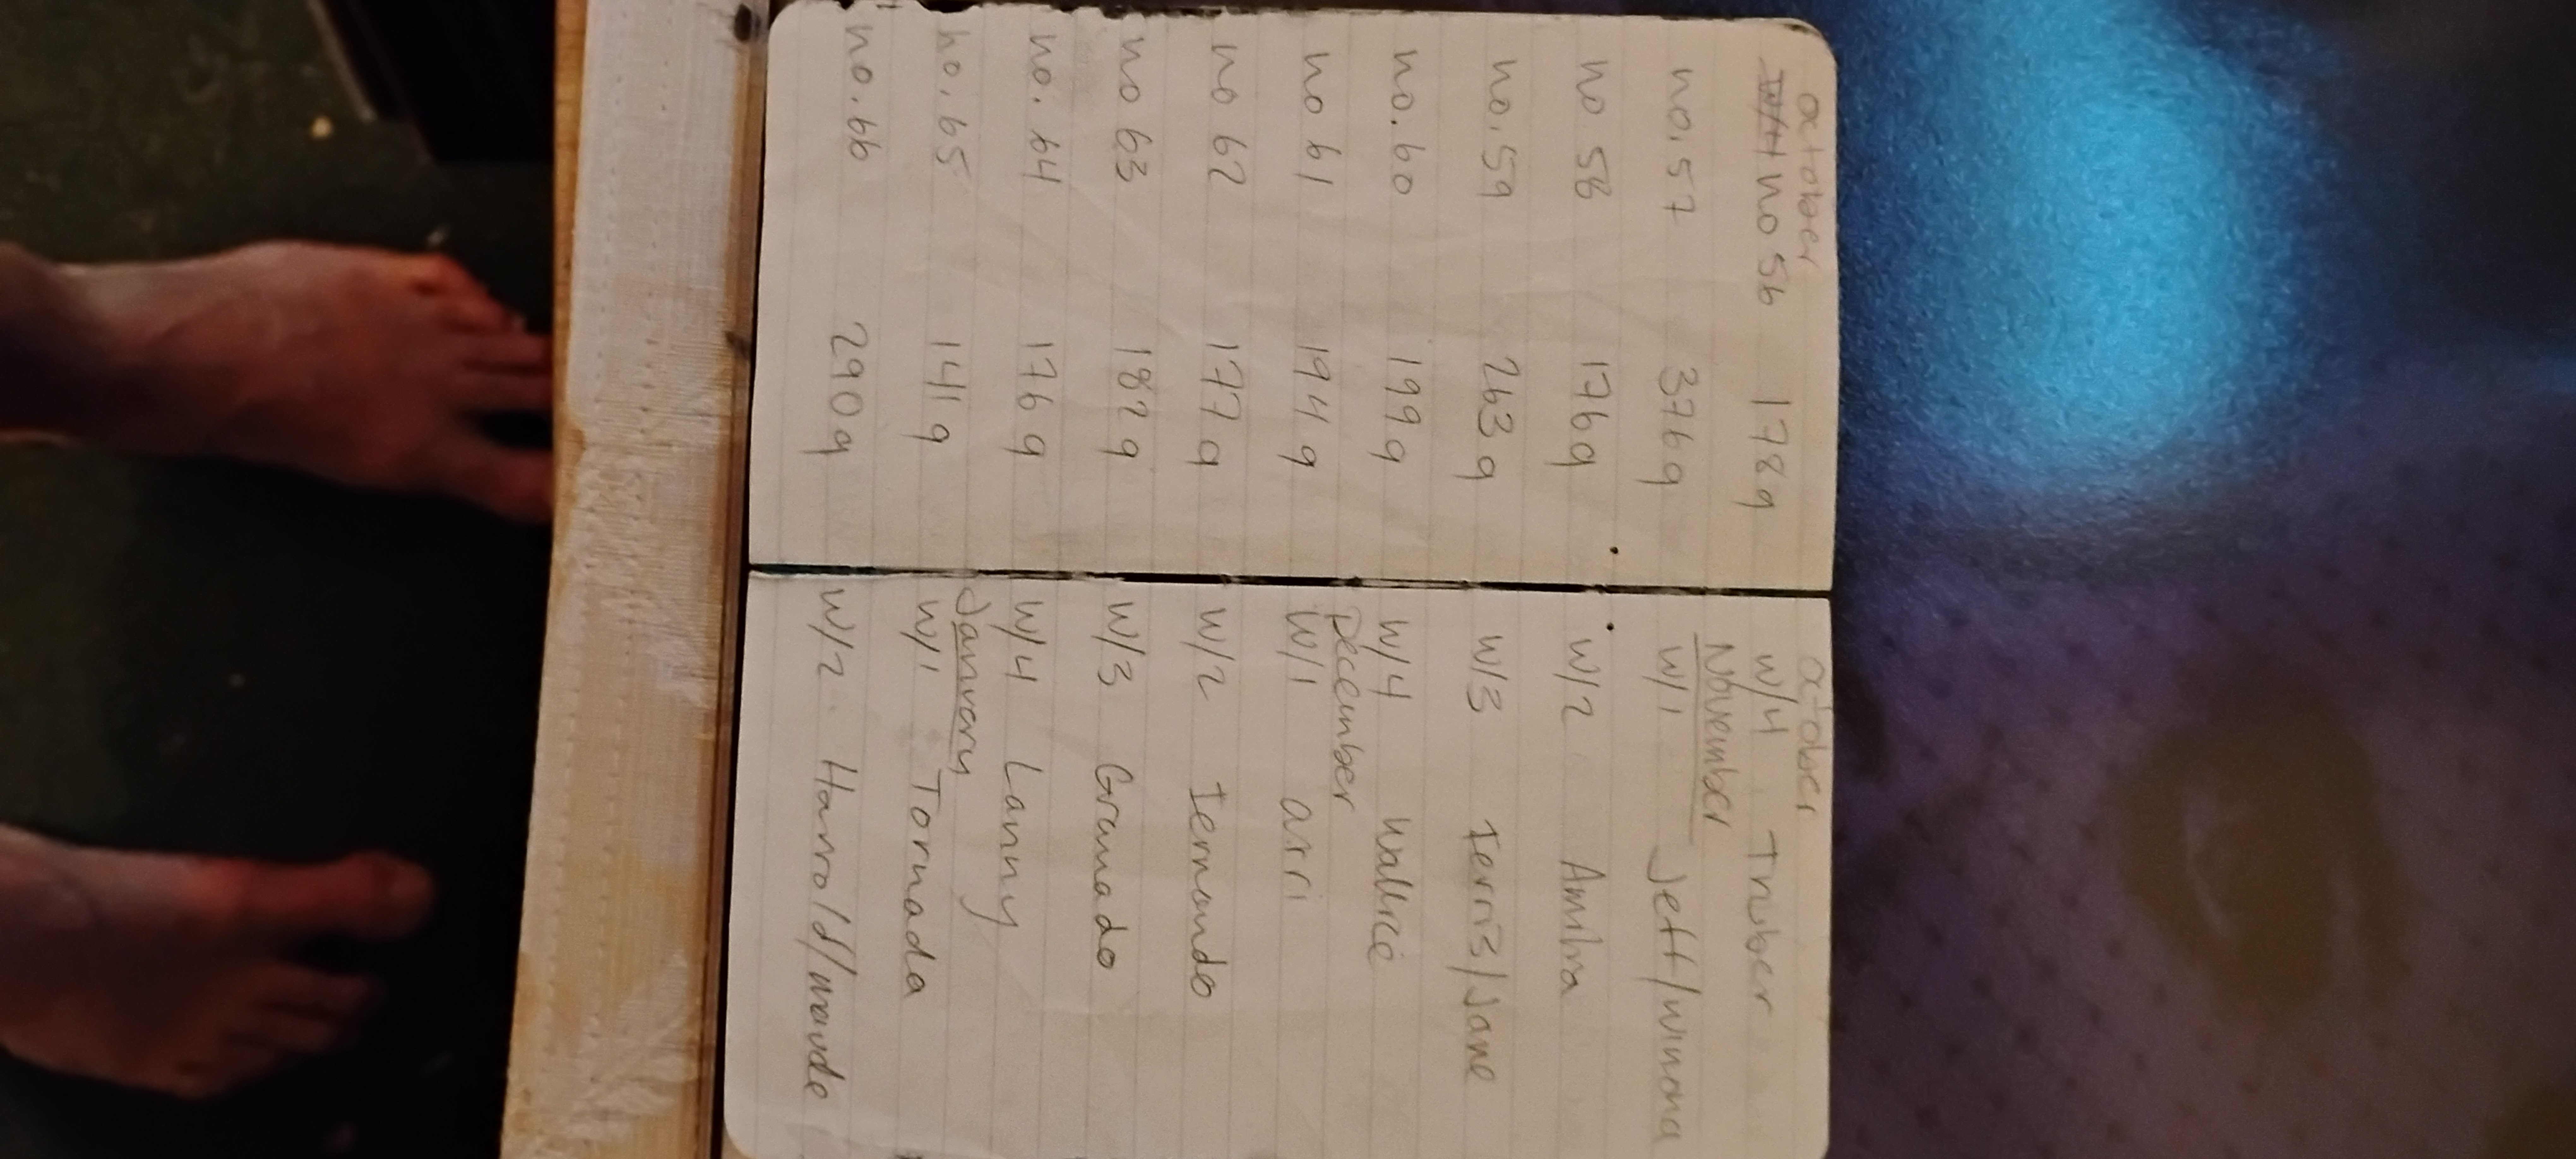 october
no 56 178g
no. 57 376g
no 58 176g
no. 59 263g
no. 60 199g
no 61 194g
no 62 177g
no 63 182g
no. 64 176g
no. 65 141g
no. 66 290g
october
w/4 Truber
November
w/1 Jeff/winona
w/2
w/3 /Jane
w/4
December
w/1 arri
w/2
w/3
w/4 Lanny
w/1 Tornada
w/2. Harrold/maude